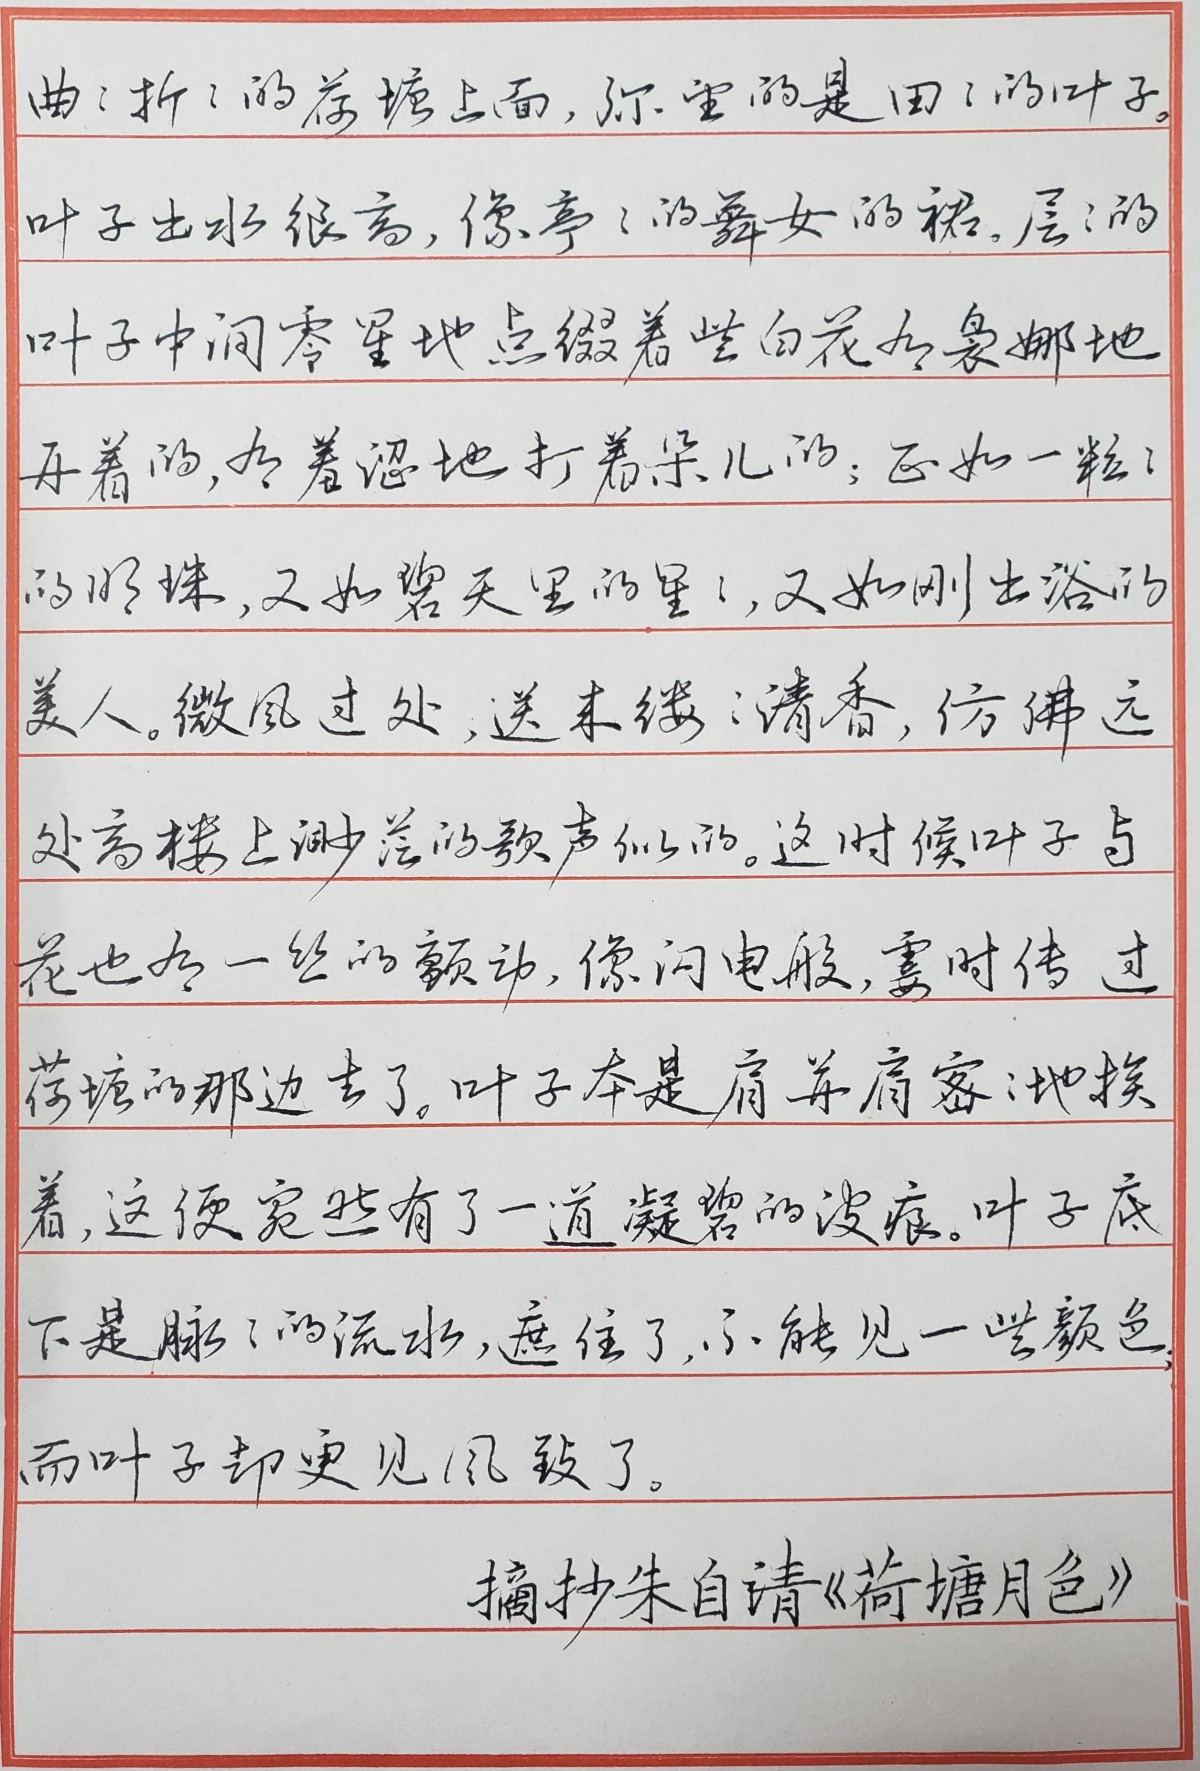 曲﹕折﹕的荷塘上面,弥望的是田﹕的叶子。
叶子出水很高,像亭﹕的舞女的裙。层﹕的
叶子中间零星地点缀着些白花有袅娜地
开着的,有羞涩地打着朵儿的;正如一粒﹕
的明珠,又如碧天里的星﹕,又如刚出浴的
美人。微风过处,送来缕﹕清香,仿佛远
处高楼上渺茫的歌声似的。这时候叶子与
花也有一丝的颤动,像闪电般,霎时传过
荷塘的那边去了。叶子本是肩并肩密﹕地挨
着,这便宛然有了一道凝碧的波痕。叶子底
下是脉﹕的流水,遮住了,不能见一些颜色;
而叶子却更见风致了。
摘抄朱自请《荷塘月色》